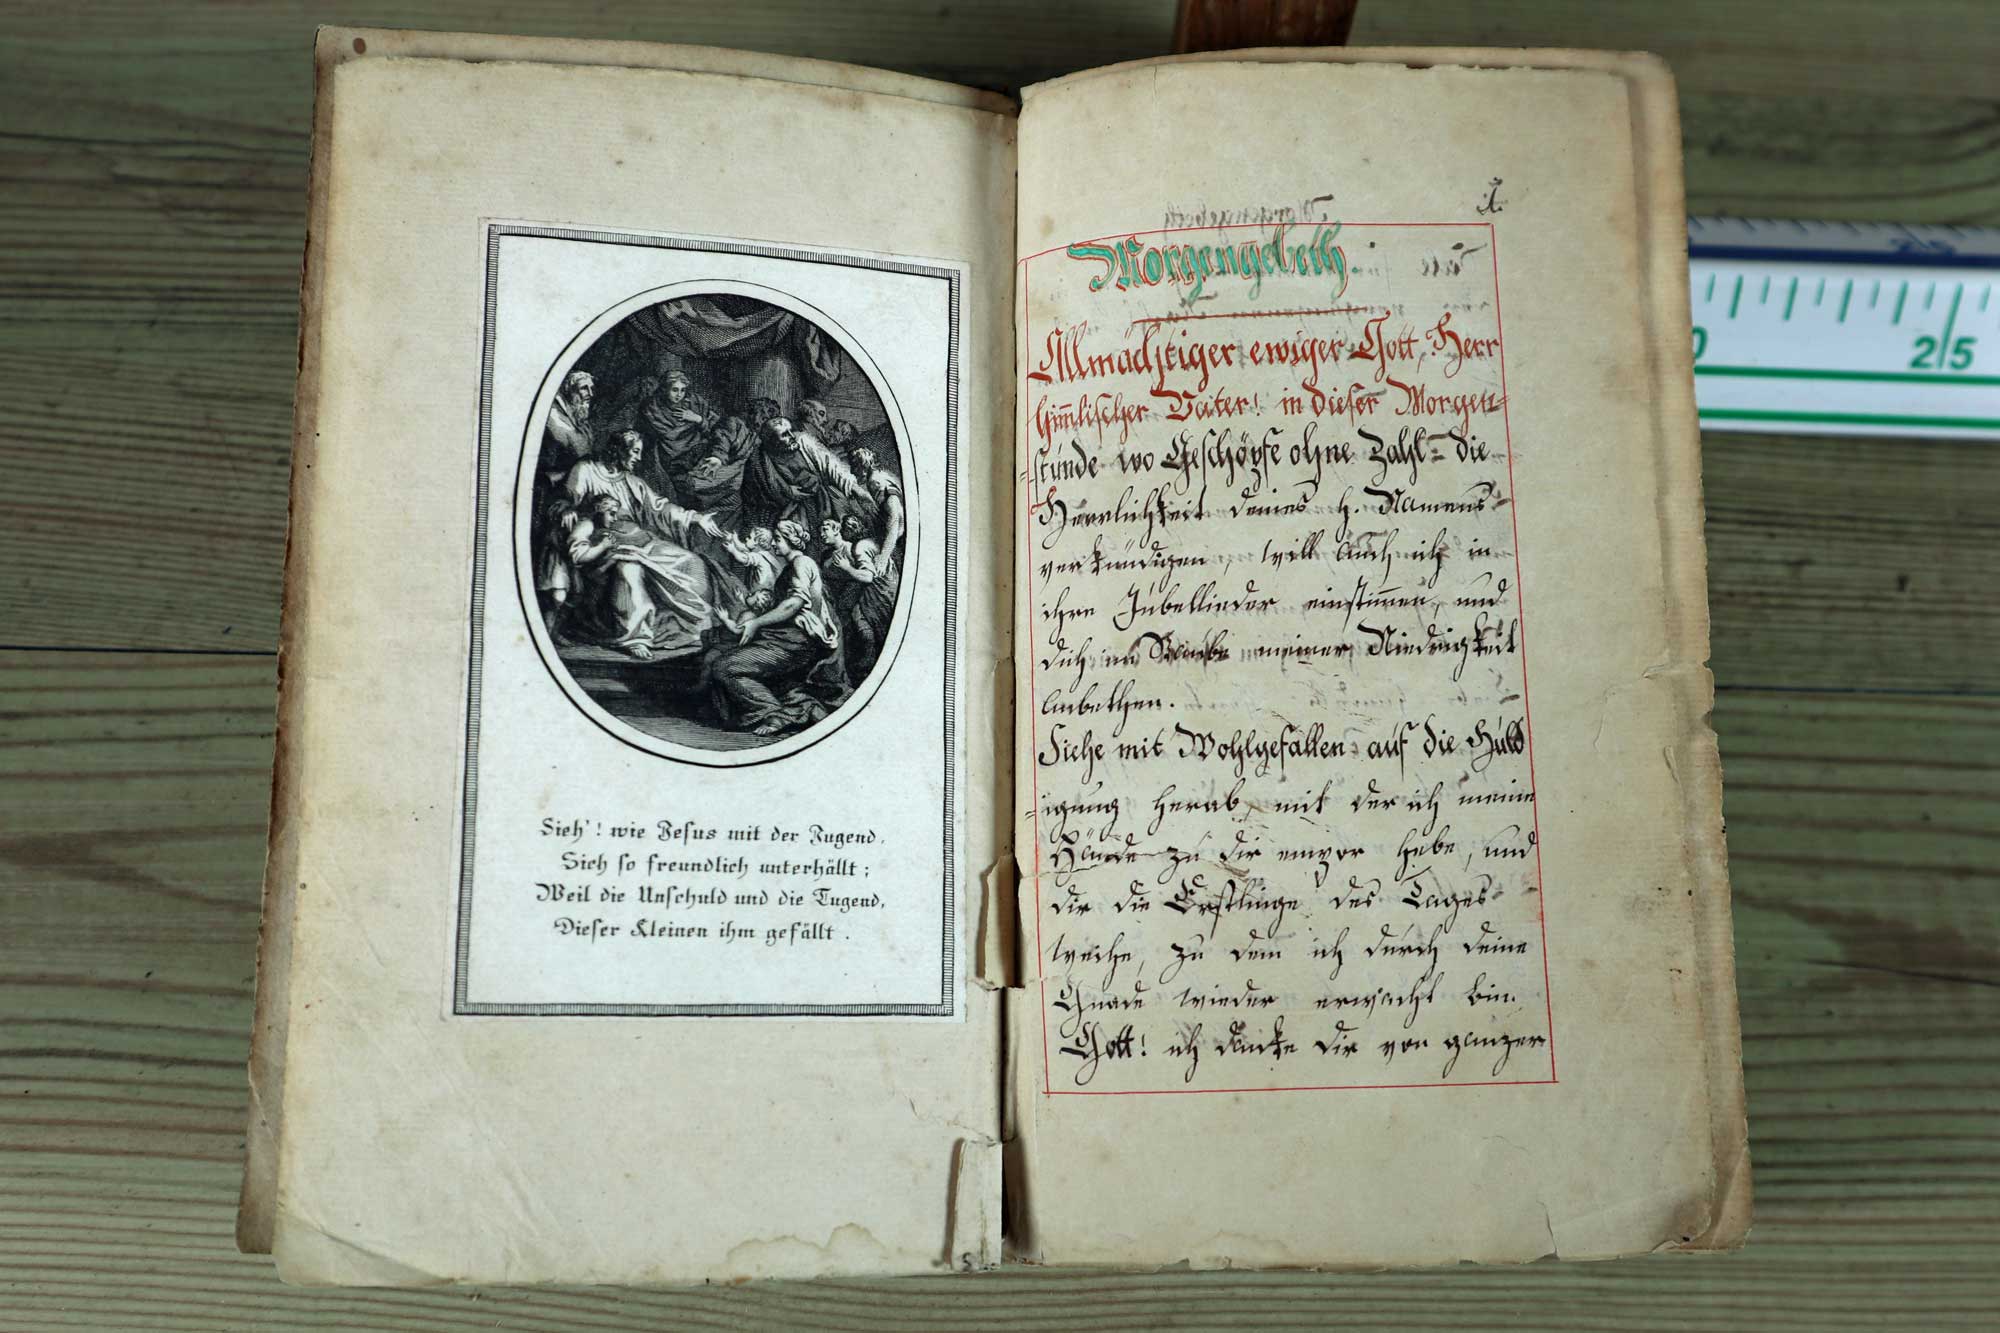 Sieh'! wie Jesus mit der Jugend,
Sich so freundlich unterhällt;
Weil die Unschuld und die Tugend,
Dieser Kleinen ihm gefällt.
1.
Morgengebeth.
Allmächtiger ewiger Gott, Herr
him̅lischer Vater! in dieser Morgen=
=stunde wo Geschöpfe ohne Zahl = die
Herrlichkeit deines H. Namens
verkündigen, will auch ich in
ihre Jubellieder einstim̅en, und
dich im Staube meiner Niedrigkeit
anbethen.
Siehe mit Wohlgefallen auf die Huld
=igung herab, mit der ich meine
Hände zu dir empor hebe, und
dir die Erstlinge des Tages
weihe, zu dem ich durch deine
Gnade wieder erwacht bin.
Gott! ich danke dir von ganzer
25